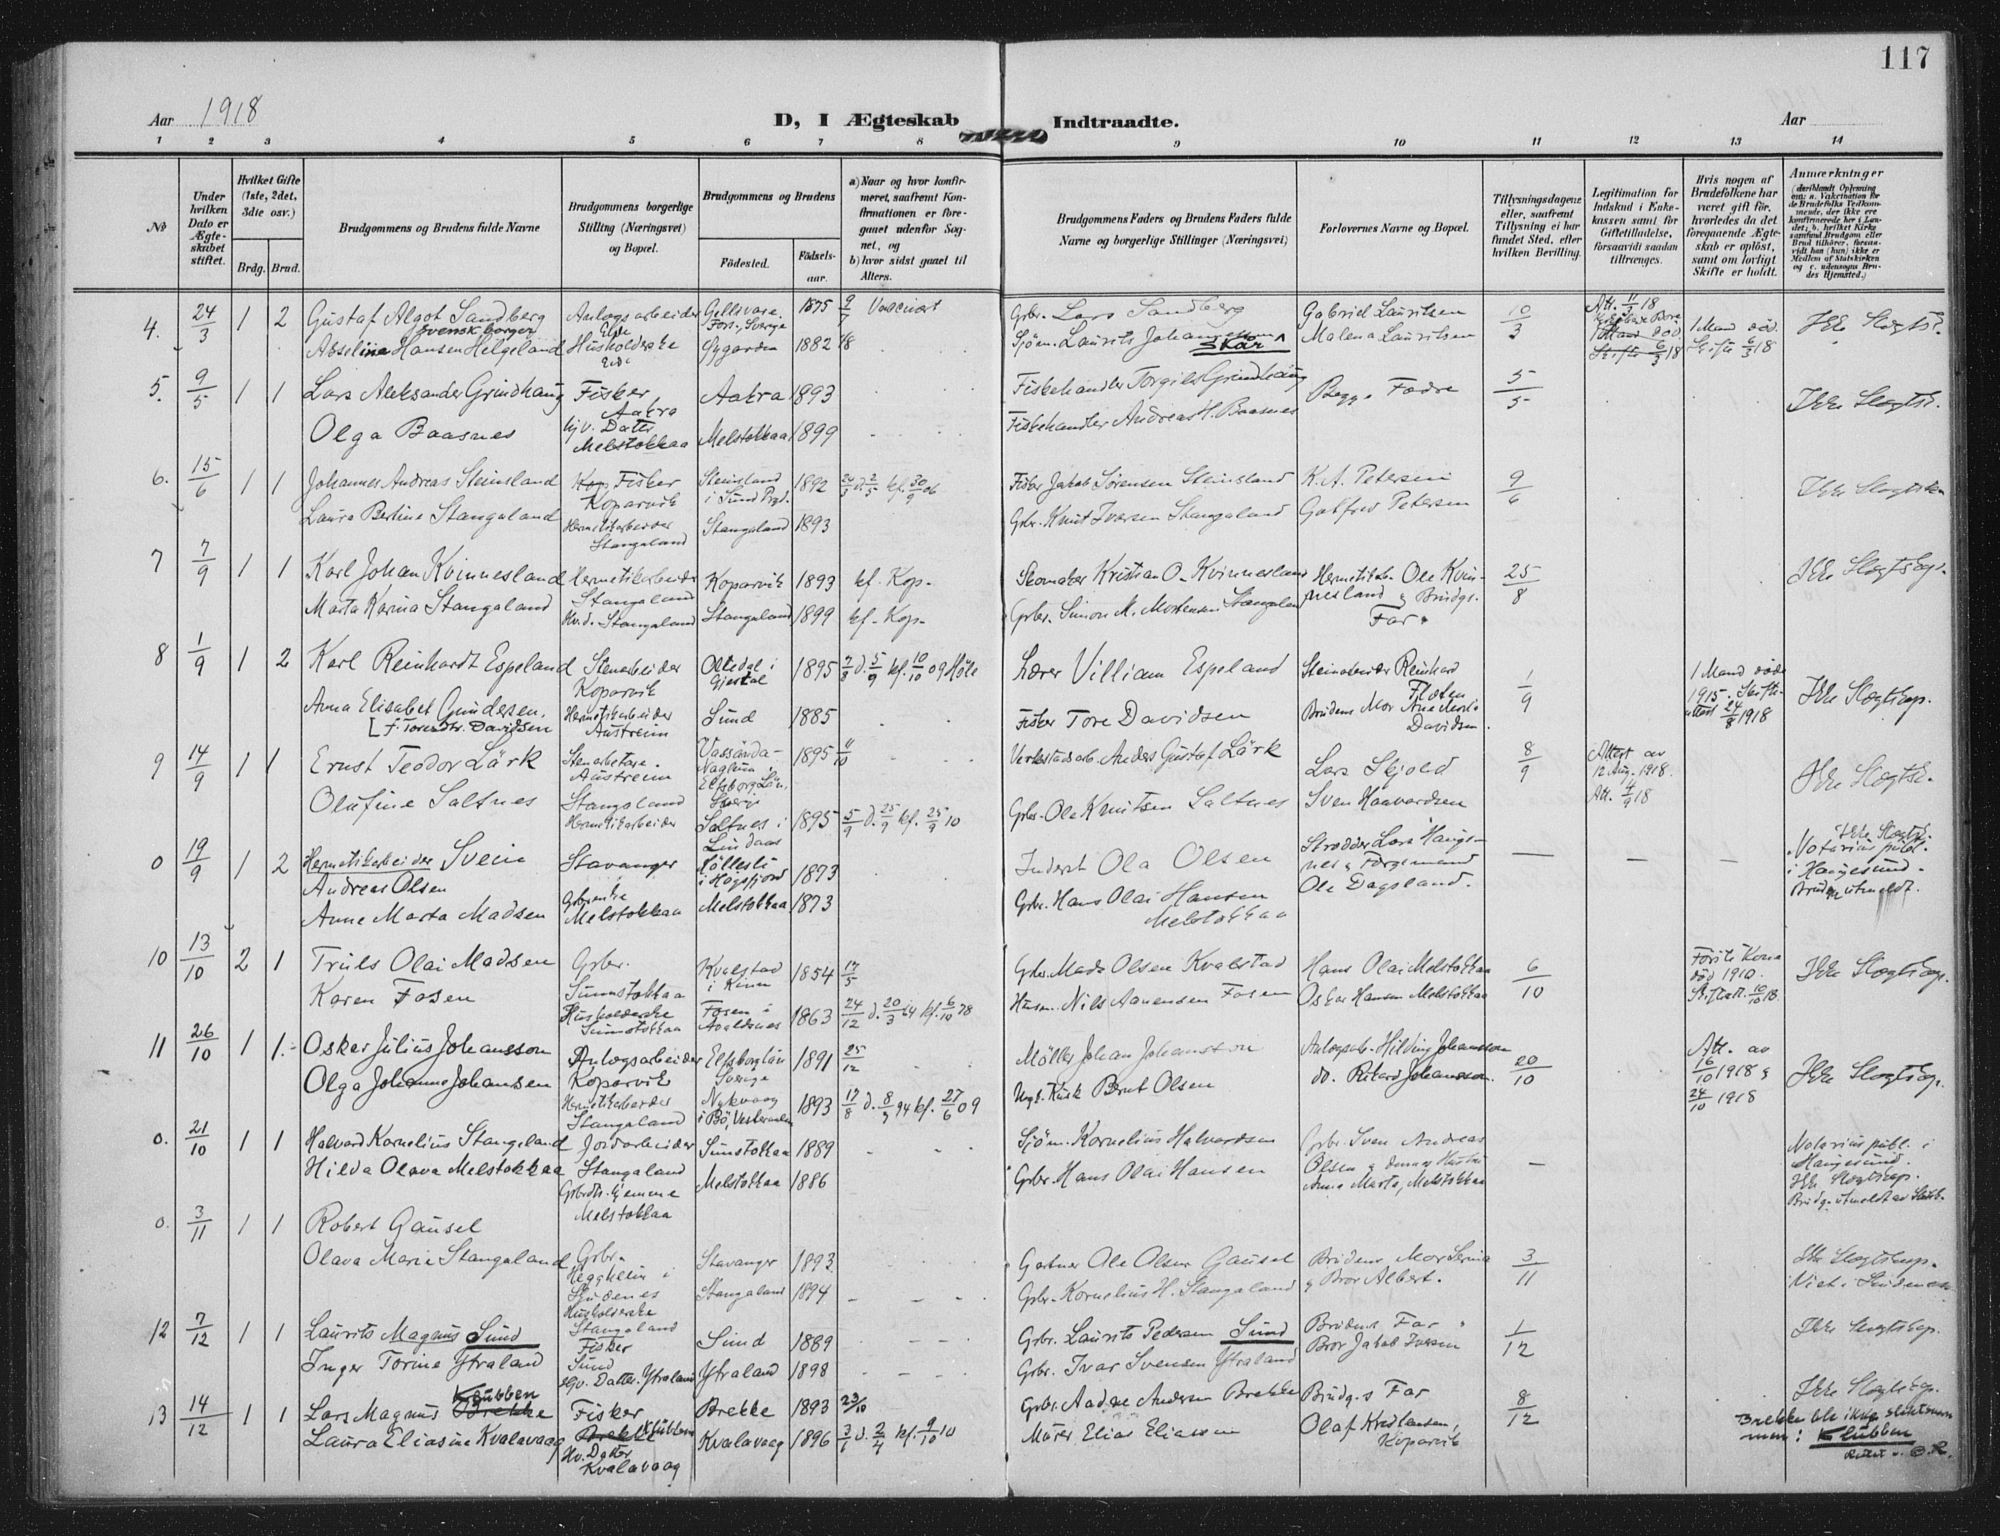 117
Aar 1918
D, I Ægteskab Indtraadte.
Aar
1 2 3 4 5 6 7 8 9 10 11 12 13 14
№
Under hvilken Dato er Ægteskabet stiftet.
Hvilket Gifte (1ste, 2det, 3die osv.)
Brdg. Brud.
Brudgommens og Brudens fulde Navne
Brudgommens borgerlige Stilling (Næringsvei) og Bopæl.
Brudgommens og Brudens
Fødested.
Fødselsaar.
a) Naar og hvor konfirmeret, saafremt Konfirmationen er foregaaet udenfor Sognet, og
b) hvor sidst gaaet til Alters.
Brudgommens Faders og Brudens Faders fulde Navne og borgerlige Stillinger (Næringsvei)
Forlovernes Navne og Bopæl.
Tillysningsdagene eller, saafremt Tillysning ei har fundet Sted, efter hvilken Bevilling.
Legitimation for Indskud i Enkekassen samt for Giftetilladelse, forsaavidt saadan tiltrænges.
Hvis nogen af Brudefolkene har været gift før, hvorledes da det foregaaende Ægteskab er opløst, samt om lovligt Skifte er holdt.
Anmærkninger
4. 24/3 1 2 Gustaf Algot Sandberg Anlægsarbeider Gellivare 1875 9/7 Vaccinert Grbr. Lars Sandberg Gabriel Lauritsen 10/3 Att. 11/3 18
svensk borger Eide Fors, Sverige
Akseline Hansen Helgeland Husholderske Eide Sygarden 1882 18 Sjøm. Laurits Johannessen Skår Malena Lauritsen 1 Mand død. Skifte 6/3 18 Ikke Slægtsk.
5. 9/5 1 1 Lars Aleksander Grindhaug Fisker Aakra Aakra 1893 Fiskehandler Torgils Grindhaug Begges Fædre 5/5 Ikke Slægtsk.
Olga Baasnes Hjv. Datter Melstokkaa Melstokkaa 1899 Fiskehandler Andreas H. Baasnes
6. 15/6 1 1 Johannes Andreas Steinsland Fisker Koparvik Steinsland i Sund Prgd. 1892 24/3 d. 2/5 kf. 30/9 06 Fisker Jakob Sørensen Steinsland K. A. Petersen 9/6 Ikke Slægtska
Laura Bertine Stangaland Hermetikarbeider Stangaland Stangaland 1893 Grbr. Knut Iversen Stangaland Gotfred Petersen
7 7/9 1 1 Karl Johan Kvinnesland Hermetikarbeider Stangaland Koparvik 1893 kf. Kop. Skomaker Kristian O. Kvinnesland Hermetikarb. Ole Kvinnesland & Brudgs. Far 25/8 Ikke Slægtskap.
Marta Karina Stangaland Hv. d. Stangaland Stangaland 1899 kf. Kop. Grbr. Simon M. Mortensen Stangaland
8 1/9 1 2 Karl Reinhardt Espeland Stenarbeider Koparvik Oltedal i Gjestal 1895 7/8 d. 5/9 kf. 10/10 09 Høle Lærer Villiam Espeland Steinarbeider Reinhard Flaten 1/9 1 Mand døde 1915. Skifteattest 24/8 1918 Ikke Slægtskap.
Anna Elisabet Gundersen, [f. Toresdtr. Davidsen Hermetikarbeider Austreim Sund 1885 Fisker Tore Davidsen Brudens Mor Ane Marta Davidsen
9 14/9 1 1 Ernst Teodor Lärk Stenarbeider Austreim Vassända-Naglum i Elfsborg Län, Sverge 1895 11/10 Verkstadsarb. Anders Gustaf Lärk Lars Skjold 8/9 Attest av 12 Aug. 1918. Att. 4/9 18 Ikke Slægtsk.
Olufine Saltnes Stangaland Hermetikarbeider Saltnes i Lindaas 1895 5/9 d. 25/9 kf. 25/9 10 Grbr. Ole Knutsen Saltnes Sven Haavardsen
0 19/9 1 2 Hermetikarbeider Svein Andreas Olsen Stavanger Høllesli i Høgsfjord 1873 Inderst Ola Olsen Strødder Lars Haugsnes & Færgemand Ole Dagsland. — — — Ikke Slægtsk. Notarius publ. i Haugesund. Bruden utmeldt.
Anne Marta Madsen Grbr.enke Melstokkaa Melstokkaa 1873 Grbr. Hans Olai Hansen Melstokkaa
10 13/10 2 1 Truls Olai Madsen Grbr. Sunnstokkaa Kvalstad i Kinn 1854 17/5 Grbr. Mads Olsen Kvalstad Hans Olai Melstokkaa 6/10 Første Kona død 1910. Skifteatt. 10/10 18. Ikke Slægtskap.
Karen Fosen Husholderske Sunnstokkaa Fosen i Avaldsnes 1863 24/12 d. 20/3 64 kf. 6/10 78 Husm. Nils Aanensen Fosen Oskar Hansen Melstokkaa
11 26/10 1 1.- Oskar Julius Johansson Anlægsarbeider Koparvik Elfsborg län Sverige 1891 25/12 Møller Johan Johansson Anlægsarb. Hilding Johansson 20/10 Att. av 6/10 1918 & 24/10 1918 Ikke Slægtskap.
Olga Johanne Johansen Hermetikarbeider Stangaland Nykvaag i Bø, Vesteraalen 1893 17/8 d. 8/9 94 kf. 27/6 09 Ungk. Kusk Bernt Olsen do. Rikard Johansson.
0. 21/10 1 1 Halvard Kornelius Stangeland Jordarbeider Stangaland Sunstokkaa 1889 Sjøm. Kornelius Halvardsen Grbr. Sven Andreas Olsen & dennes Hustru Anna Marta, Melstokkaa — Notarius publ. i Haugesund. Ikke Slægtskap.
Hilda Olava Melstokkaa Grbrdtr. hjemme Melstokkaa Melstokkaa 1886 Grbr. Hans Olai Hansen Brudg. utmeldt av Statsk.
0. 3/11 1 1 Robert Gausel Grbr. Stavanger 1893 Gartner Ole Olsen Gausel Brudens Mor Serina & Bror Albert. 3/11 Ikke Slægtskap.
Olava Marie Stangaland Husholderske Stangaland Stangaland 1894 Grbr. Kornelius H. Stangaland
12 7/12 1 1 Laurits Magnus Sund Fisker Sund Sund 1889 Grbr. Laurits Pedersen Sund Brudens Far 1/12 Ikke Slægtskap.
Inger Torine Ytraland Hjv. Datter. Ytraland Ytraland 1898 Grbr. Ivar Svensen Ytraland Bror Jakob Iversen
13 14/12 1 1 Lars Magnus Brekke Klubben Fisker Brekke Klubben Brekke 1893 23/10 Grbr. Aadne Andersen Brekke Brudg.s Far 8/12 Ikke Slægtskap.
Laura Eliasine Kvalavaag Hv. Datter Kvalavaag Kvalavaag 1896 3/1 d. 2/4 kf. 9/10 10 Murer Elias Eliassen Olaf Kristiansen, Koparvik Brekke ble ikke slektsnavn men: Klubben